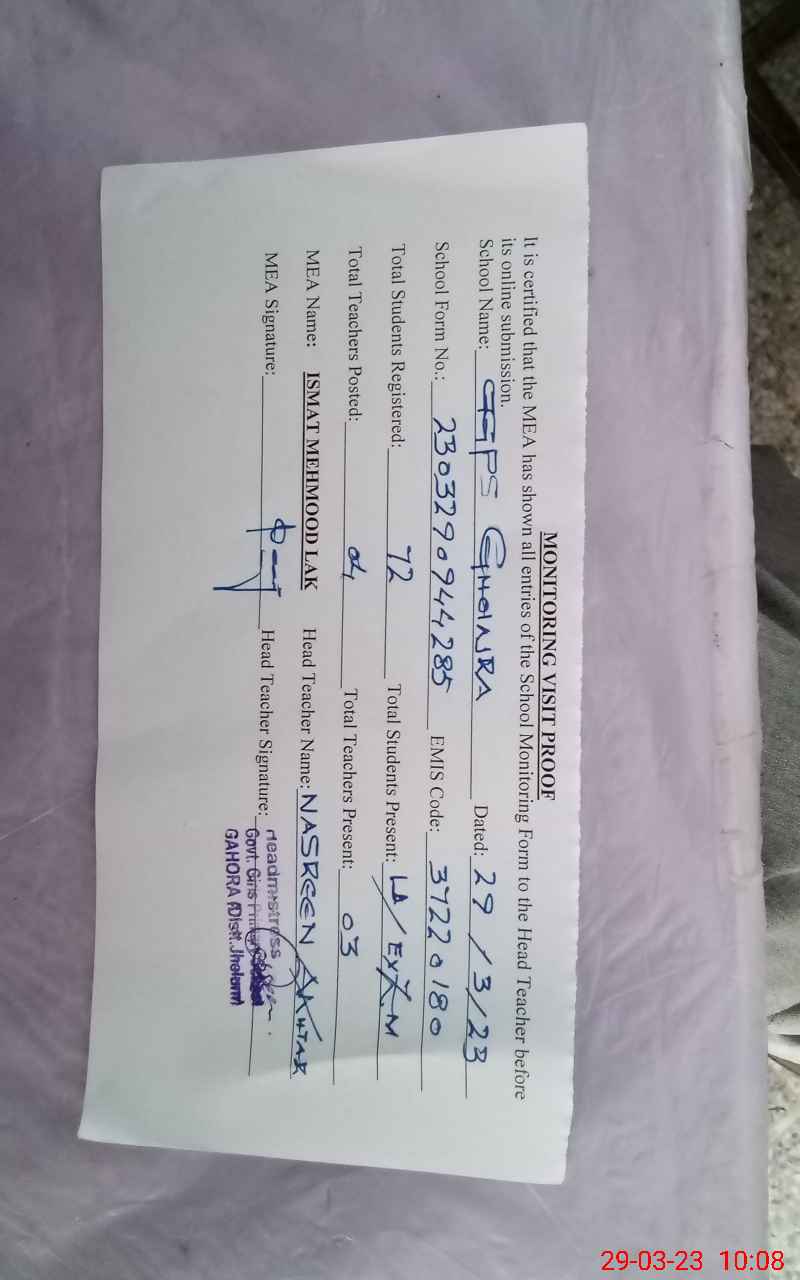 MONITORING VISIT PROOF
It is certified that the MEA has shown all entries of the School Monitoring Form to the Head Teacher before
its online submission.
School Name: GGPS GHOINRA Dated: 29/3/23
School Form No.: 2303290944285 EMIS Code: 37220180
Total Students Registered: 72 Total Students Present: LA/EXAM
Total Teachers Posted: 04 Total Teachers Present: 03
MEA Name: ISMAT MEHMOOD LAK Head Teacher Name: NASREEN AKHTAR
MEA Signature: Head Teacher Signature:
Headmistress
Govt. Girls
GAHORA (Distt. Jhelum)
29-03-23 10:08